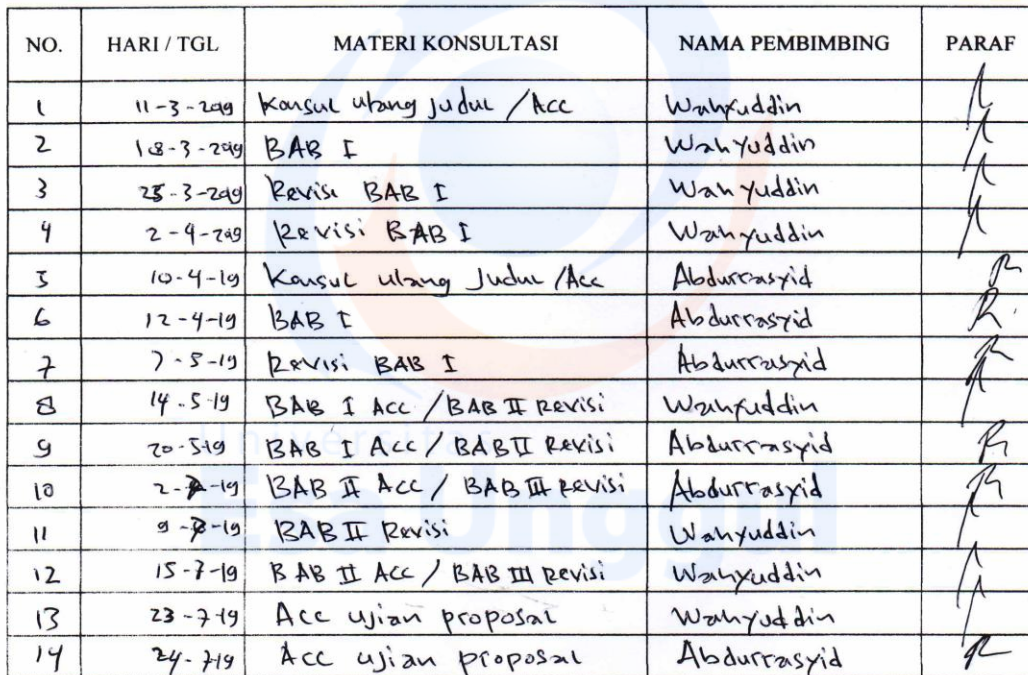 NO. HARI / TGL MATERI KONSULTASI NAMA PEMBIMBING PARAF
1 11-3-2019 Konsul ulang judul / Acc Wahyuddin
2 18-3-2019 BAB I Wahyuddin
3 25-3-2019 Revisi BAB I Wahyuddin
4 2-4-2019 Revisi BAB I Wahyuddin
5 10-4-19 Konsul ulang Judul / Acc Abdurrasyid
6 12-4-19 BAB I Abdurrasyid
7 7-5-19 Revisi BAB I Abdurrasyid
8 14-5-19 BAB I Acc / BAB II Revisi Wahyuddin
Universitas
9 20-5-19 BAB I Acc / BAB II Revisi Abdurrasyid
10 2-7-19 BAB II Acc / BAB III Revisi Abdurrasyid
Esa Unggul
11 9-7-19 BAB II Revisi Wahyuddin
12 15-7-19 BAB II Acc / BAB III Revisi Wahyuddin
13 23-7-19 Acc ujian proposal Wahyuddin
14 24-7-19 Acc ujian proposal Abdurrasyid